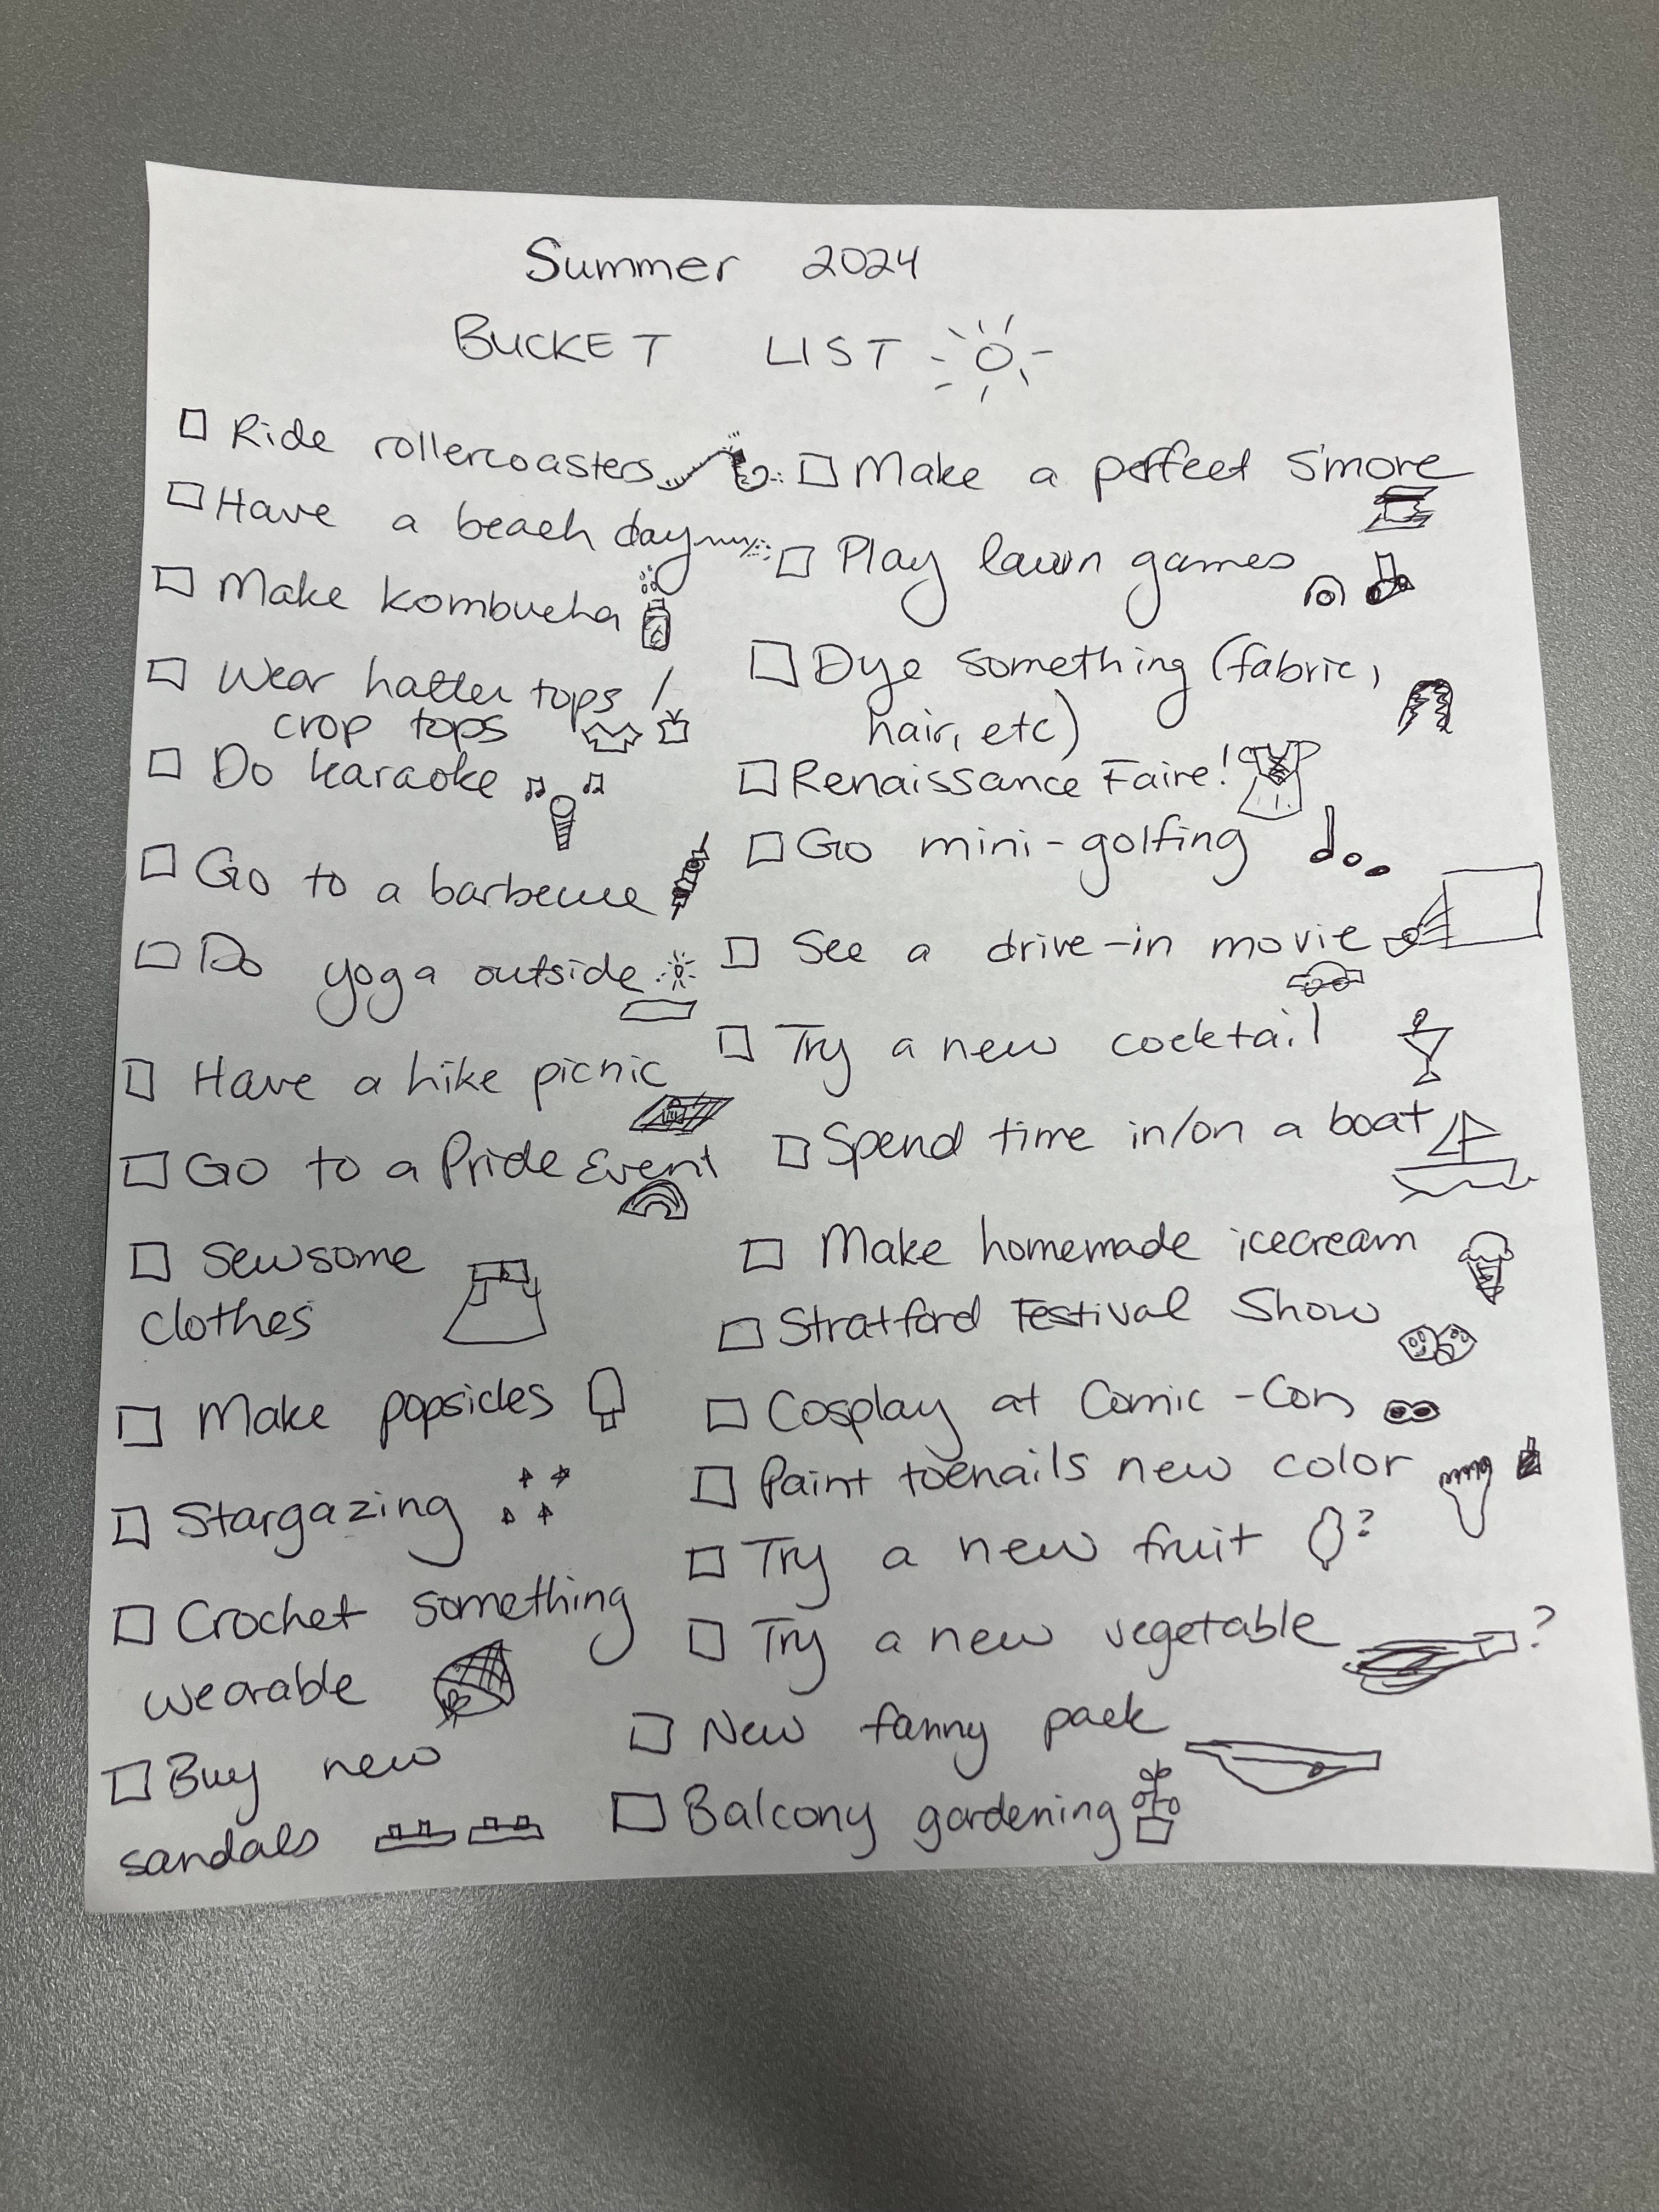 Summer 2024
BUCKET LIST
Ride rollercoasters
Have a beach day
Make kombucha
Wear halter tops /
crop tops
Do karaoke
Go to a barbecue
Do yoga outside
Have a hike picnic
Go to a Pride Event
Sew some
clothes
Make popsicles
Stargazing
Crochet something
wearable
Buy new
sandals
Make a perfect s'more
Play lawn games
Dye something (fabric,
hair, etc)
Renaissance Faire!
Go mini-golfing
See a drive-in movie
Try a new cocktail
Spend time in/on a boat
Make homemade icecream
Stratford Festival Show
Cosplay at Comic-Con
Paint toenails new color
Try a new fruit ?
Try a new vegetable ?
New fanny pack
Balcony gardening